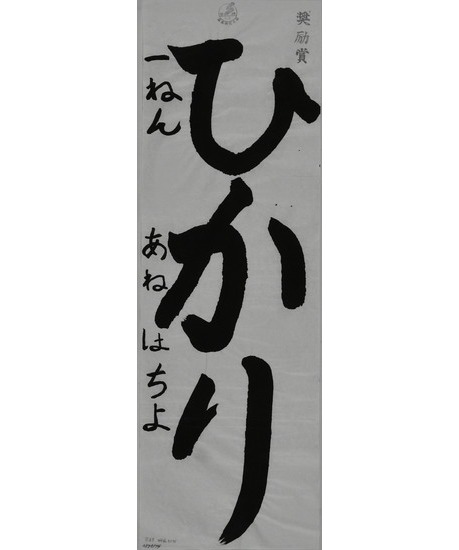 奨励賞
ひかり
一ねん あね はちよ